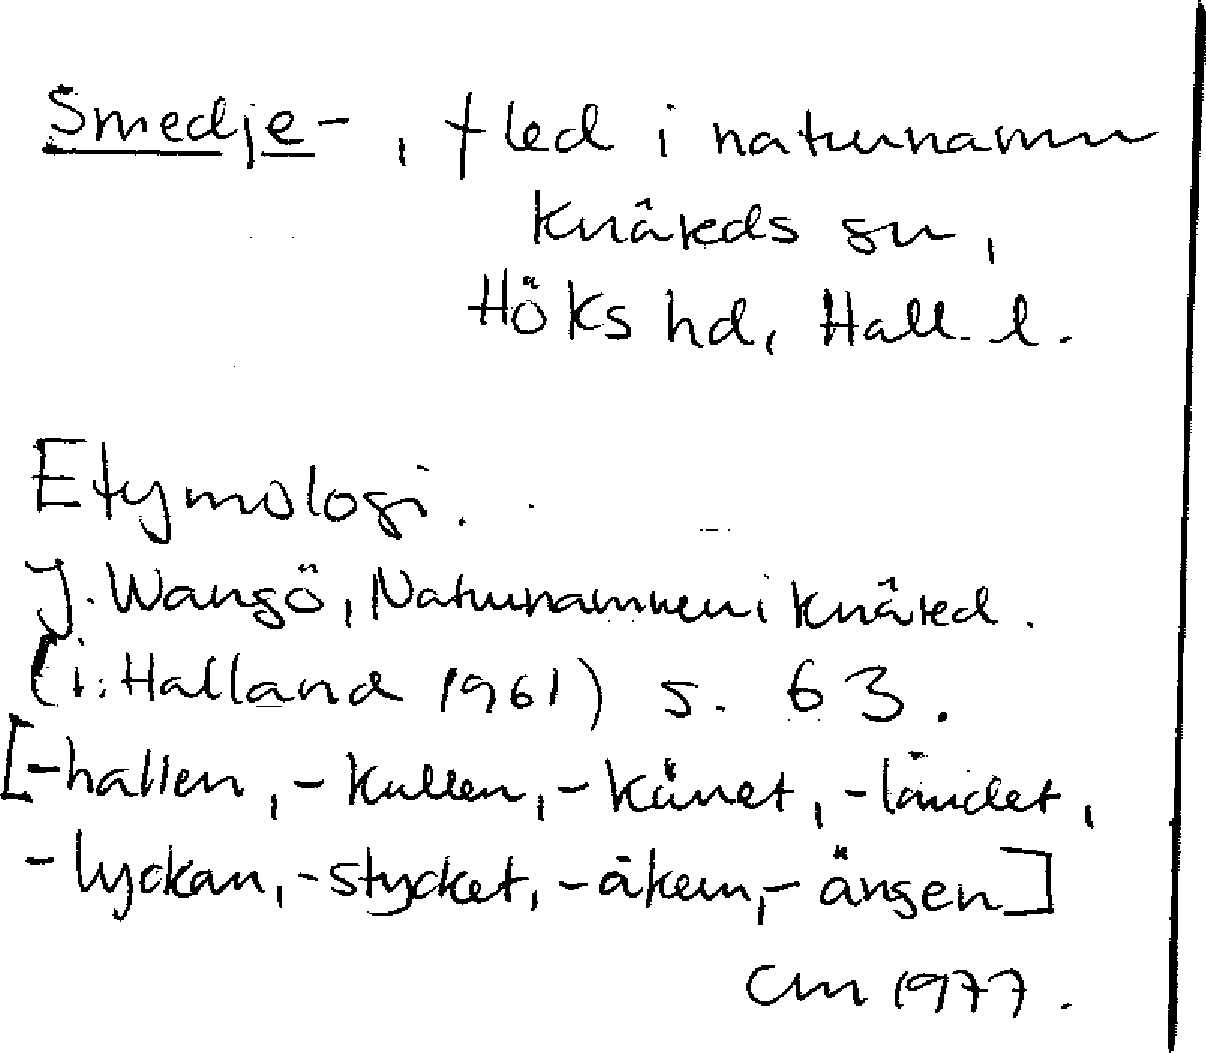 Smedje-, f led i naturnamn
Knäreds sn,
Höks hd, Hall. l.
Etymologi.
J. Wangö, Naturnamnen i Knäred.
(i: Halland 1961) s. 63.
[-hallen, -kullen, -kärret, -landet,
-lyckan, -stycket, -åkern, -ängen]
CM 1977.